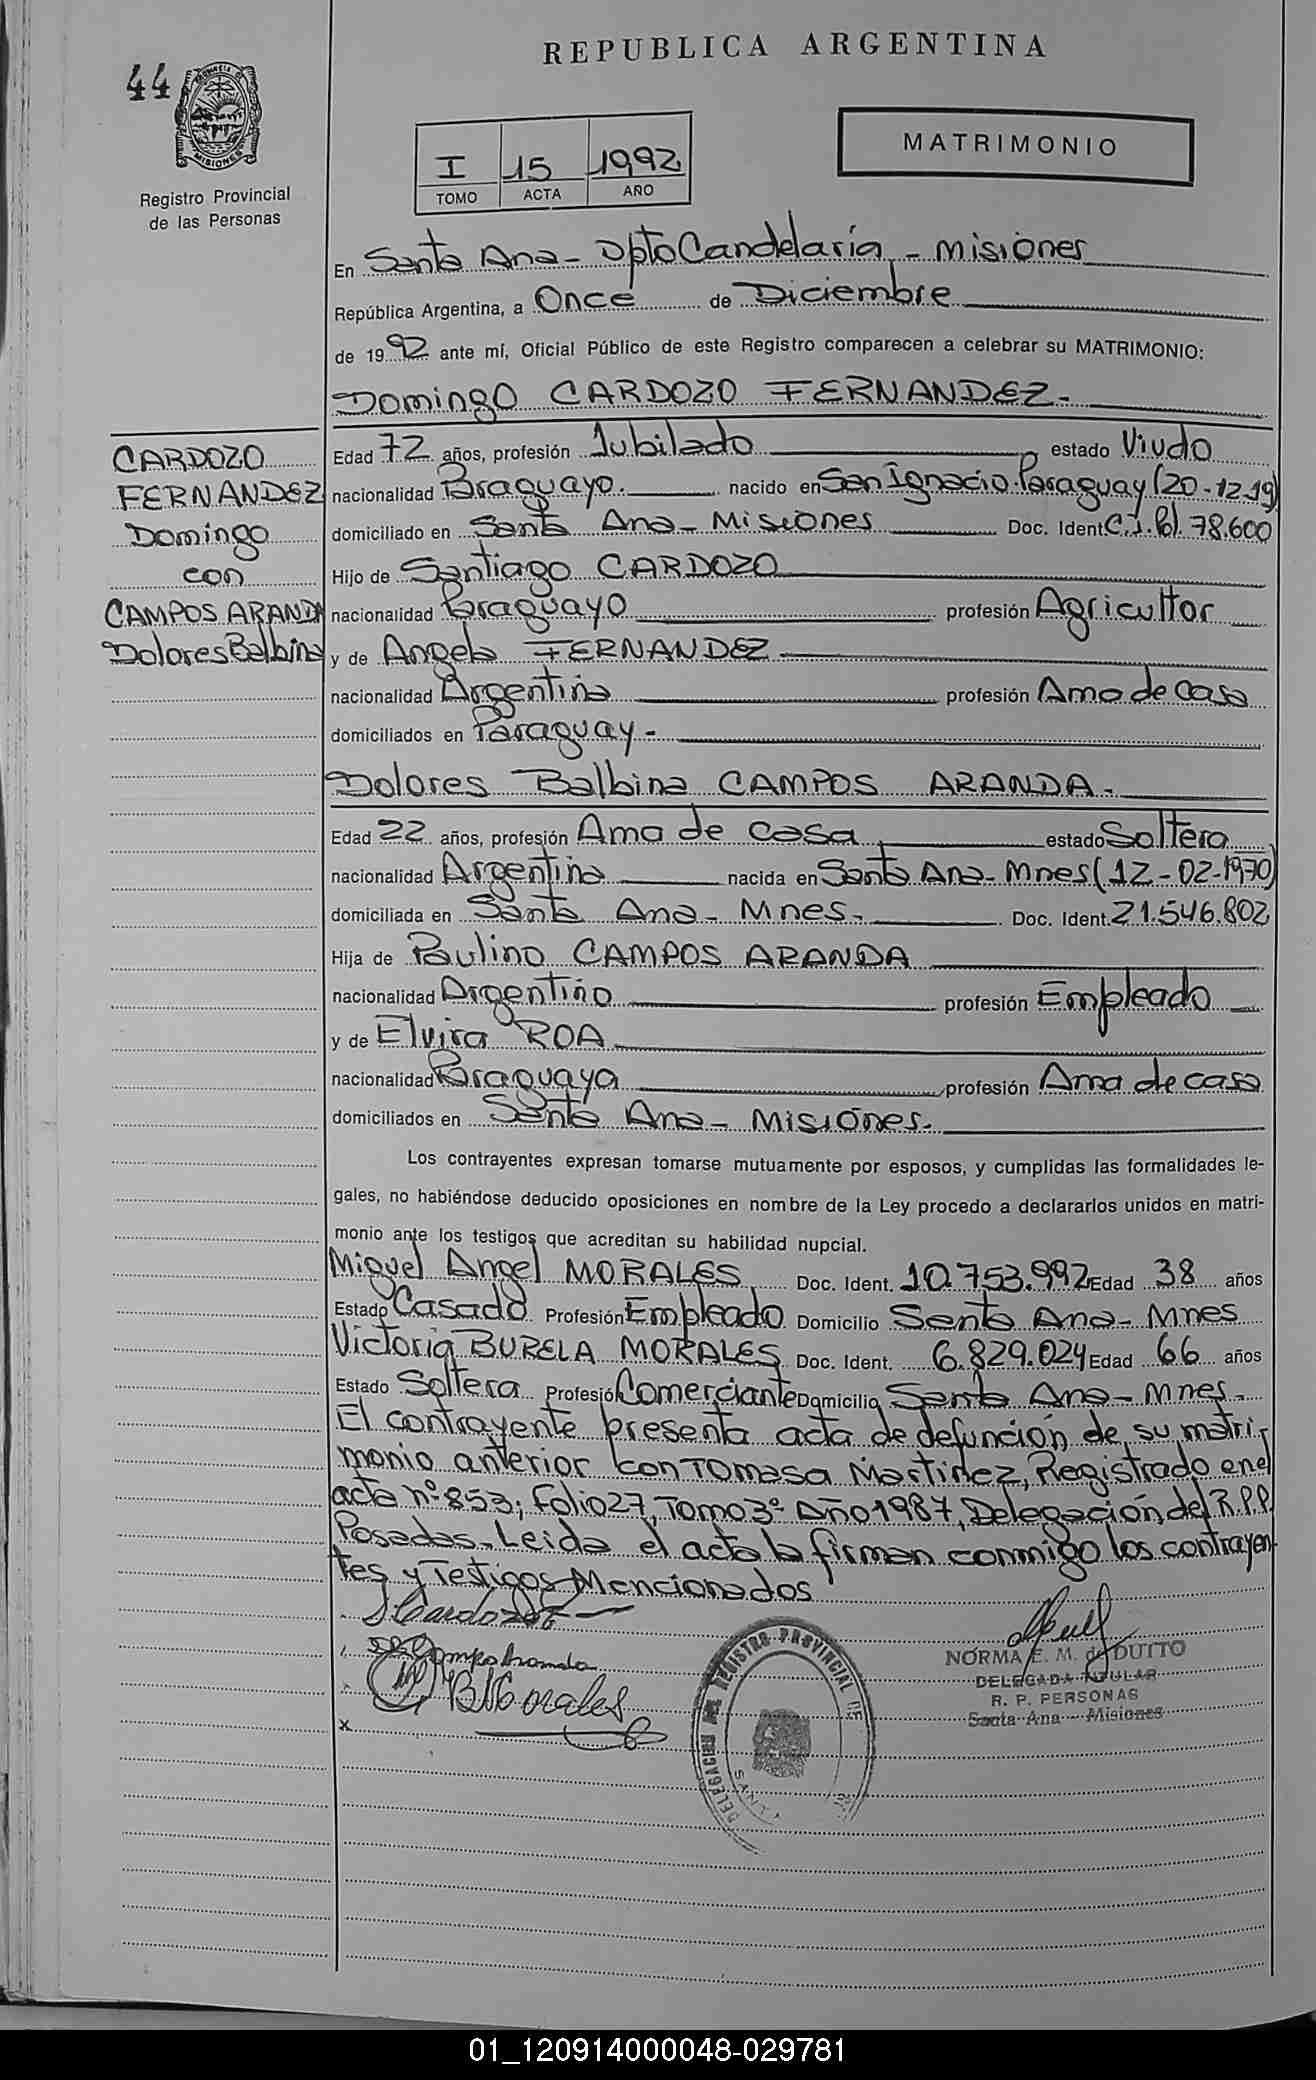 REPUBLICA ARGENTINA
44
MISIONES
Registro Provincial
de las Personas
I 15 1992
TOMO ACTA AÑO
MATRIMONIO
En Santa Ana - Dpto Candelaria - Misiones
República Argentina, a Once de Diciembre
de 1992 ante mí, Oficial Público de este Registro comparecen a celebrar su MATRIMONIO:
Domingo CARDOZO FERNANDEZ.-
CARDOZO
FERNANDEZ
Domingo
con
CAMPOS ARANDA
Dolores Balbina
Edad 72 años, profesión Jubilado estado Viudo
nacionalidad Paraguayo. nacido en San Ignacio Paraguay (20-12-19)
domiciliado en Santa Ana - Misiones Doc. Ident. C.I.(P). 78.600
Hijo de Santiago CARDOZO
nacionalidad Paraguayo profesión Agricultor
y de Angela FERNANDEZ
nacionalidad Argentina profesión Ama de casa
domiciliados en Paraguay.-
Dolores Balbina CAMPOS ARANDA.-
Edad 22 años, profesión Ama de casa estado Soltera
nacionalidad Argentina nacida en Santa Ana - Mnes (12-02-1970)
domiciliada en Santa Ana - Mnes.- Doc. Ident. 21.546.802
Hija de Paulino CAMPOS ARANDA
nacionalidad Argentino profesión Empleado
y de Elvira ROA
nacionalidad Paraguaya profesión Ama de casa
domiciliados en Santa Ana - Misiones.
Los contrayentes expresan tomarse mutuamente por esposos, y cumplidas las formalidades le-
gales, no habiéndose deducido oposiciones en nombre de la Ley procedo a declararlos unidos en matri-
monio ante los testigos que acreditan su habilidad nupcial.
Miguel Angel MORALES Doc. Ident. 10.753.992 Edad 38 años
Estado Casado Profesión Empleado Domicilio Santa Ana - Mnes
Victoria BURELA MORALES Doc. Ident. 6.829.024 Edad 66 años
Estado Soltera Profesión Comerciante Domicilio Santa Ana - Mnes.
El contrayente presenta acta de defunción de su matri-
monio anterior con Tomasa Martinez, Registrado en el
acta nº 853; Folio 27, Tomo 3º Año 1987, Delegación del R.P.P.
Posadas. Leida el acta la firman conmigo los contrayen
tes y Testigos Mencionados
Cardozo
Campos Aranda
Morales
x
NORMA E. M. de DUTTO
DELEGADA TITULAR
R. P. PERSONAS
Santa Ana - Misiones
DELEGACION DEL REGISTRO PROVINCIAL DE
SANTA
01_120914000048-029781